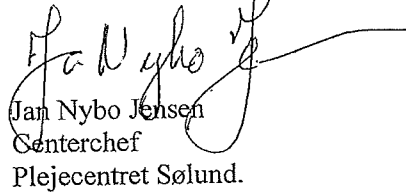 Jan Nybo Je
Jan Nybo Jensen
Centerchef
Plejecentret Sølund.